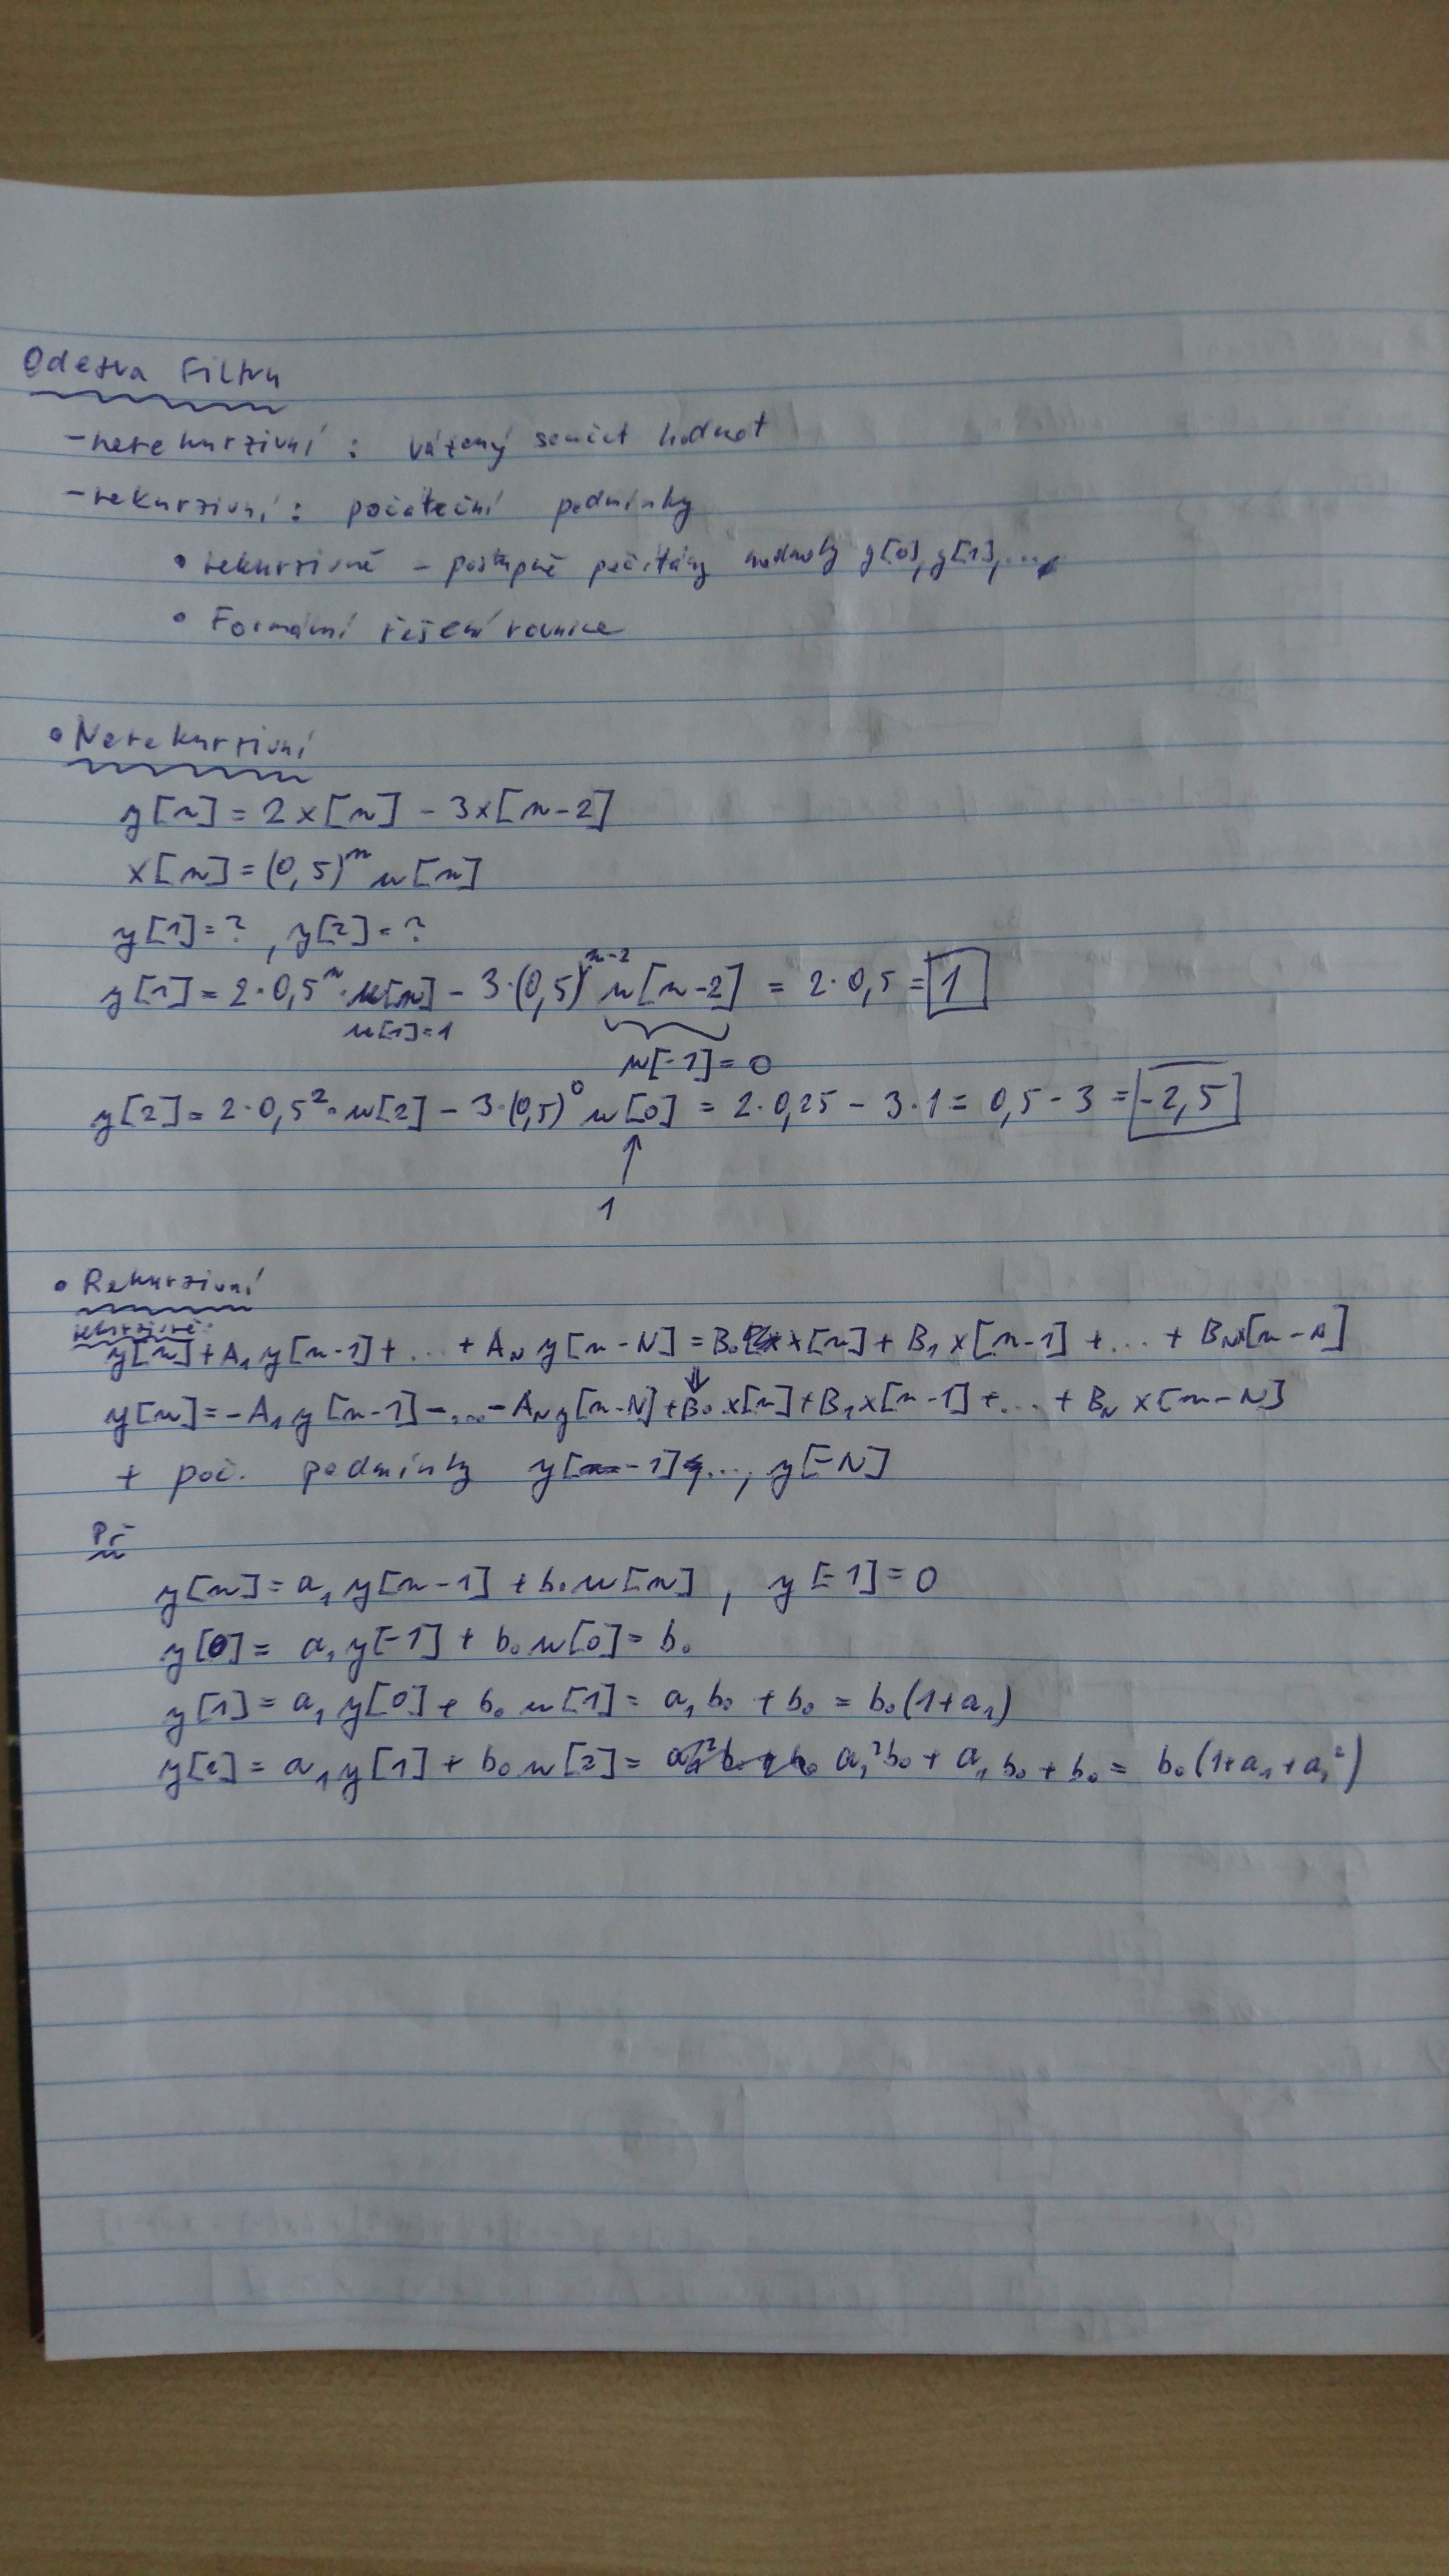 Odezva Filtru
- nerekurzivní : vážený součet hodnot
- rekurzivní : počáteční podmínky
• rekurzivně - postupně počítány hodnoty y[0], y[1], ...
• Formální řešení rovnice
• Nerekurzivní
y[n] = 2x[n] - 3x[n-2]
x[n] = (0,5)^n u[n]
y[1] = ? , y[2] = ?
y[1] = 2·0,5^n · u[n] - 3·(0,5)^(n-2) u[n-2] = 2·0,5 = 1
u[1] = 1
u[-1] = 0
y[2] = 2·0,5² · u[2] - 3·(0,5)^0 u[0] = 2·0,25 - 3·1 = 0,5 - 3 = -2,5
1
• Rekurzivní
rekurzivně:
y[n] + A₁ y[n-1] + ... + A_N y[n-N] = B₀ x[n] + B₁ x[n-1] + ... + B_N x[n-N]
y[n] = -A₁ y[n-1] - ... - A_N y[n-N] + B₀ x[n] + B₁ x[n-1] + ... + B_N x[n-N]
+ poč. podmínky y[-1], ..., y[-N]
Př
y[n] = a₁ y[n-1] + b₀ u[n] , y[-1] = 0
y[0] = a₁ y[-1] + b₀ u[0] = b₀
y[1] = a₁ y[0] + b₀ u[1] = a₁ b₀ + b₀ = b₀(1+a₁)
y[2] = a₁ y[1] + b₀ u[2] = a₁² b₀ + a₁ b₀ + b₀ = b₀(1+a₁+a₁²)